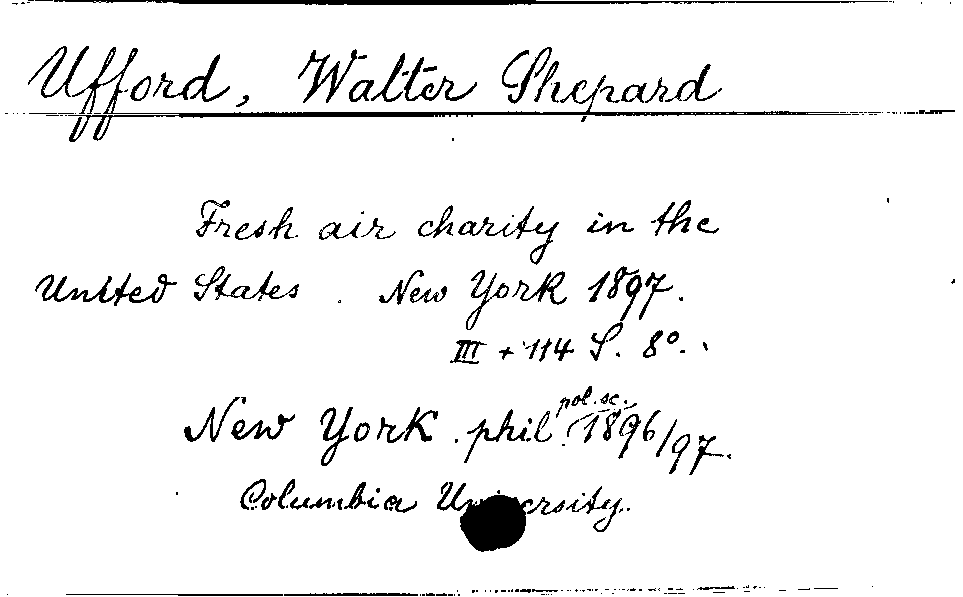 Ufford, Walter Shepard
Fresh air charity in the
United States. New York 1897.
III + 114 S. 8°.
New York. phil. pol. sc. 1896/97.
Columbia University.